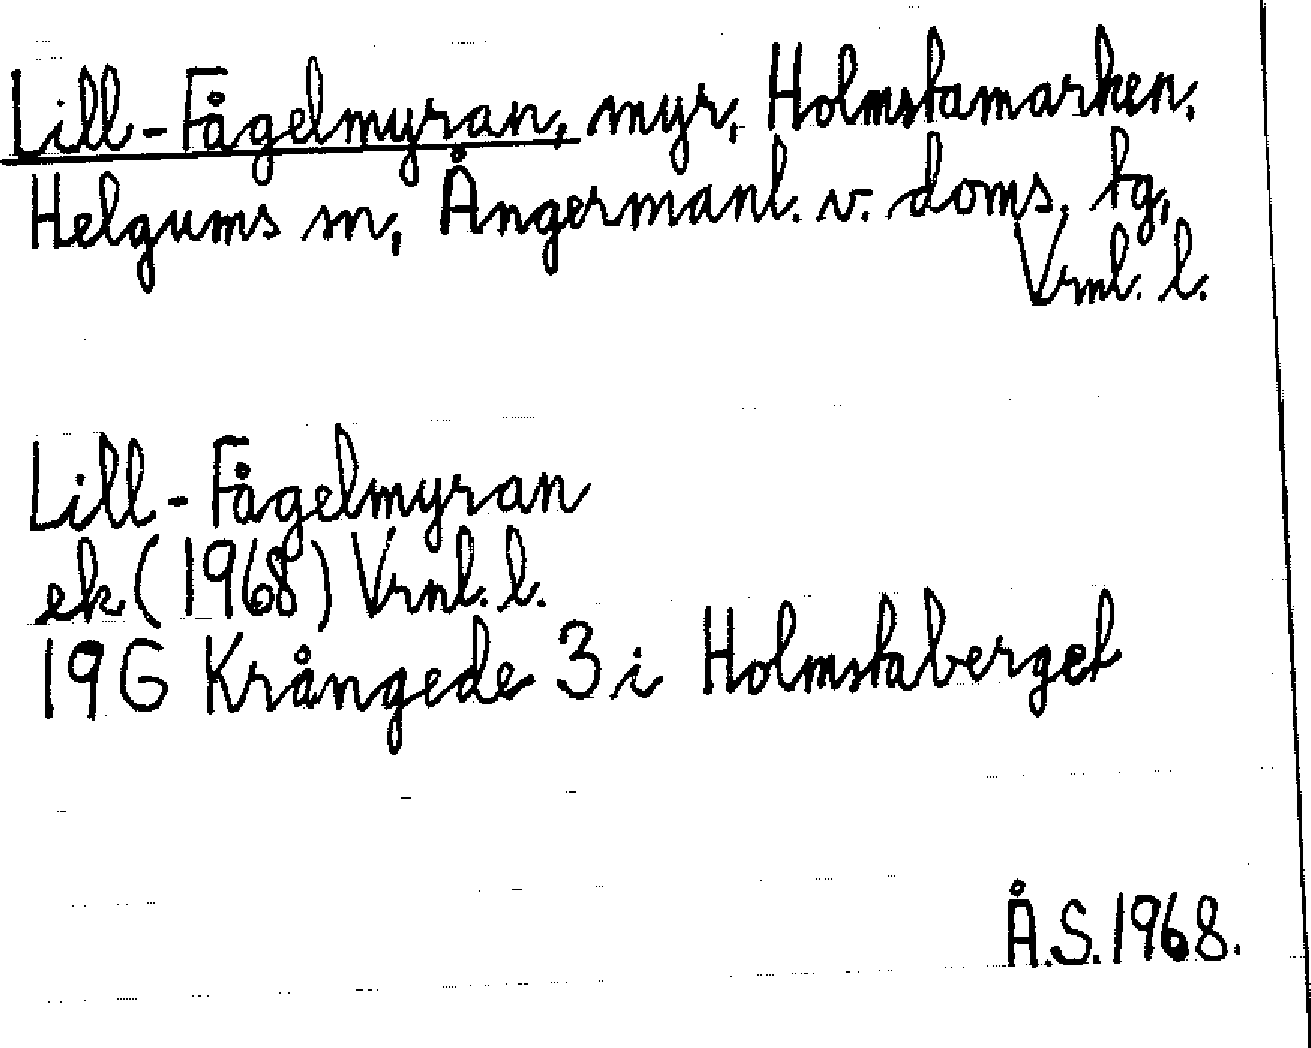 Lill-Fågelmyran, myr, Holmstamarken,
Helgums sn, Ångermanl. v. doms. tg,
Vrnl. l.
Lill-Fågelmyran
ek (1968) Vrnl. l.
19G Krångede 3 i Holmstaberget
Å.S. 1968.